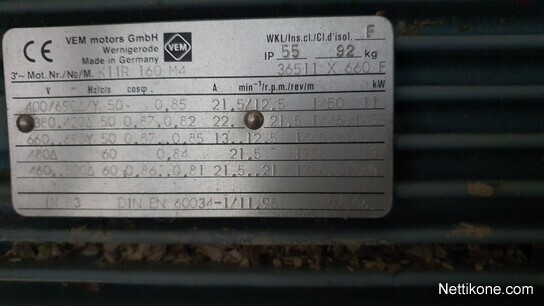 CE VEM motors GmbH VEM WKL/Ins.cl./Cl.d'isol. F
Wernigerode IP 55 92 kg
Made in Germany
3~ Mot. Nr./№/M. K11R 160 M4 36511 X 660 F
V Hz/c/s cosφ A min⁻¹/r.p.m./rev/m kW
400/690Δ/Y 50 0,85 21.5/12.5 1450 11
380..420Δ 50 0,87..0,82 22. 21.5
660.. Y 50 0,87..0,85 13..12.5
480Δ 60 0,84 21.5
460..500Δ 60 0,86..0,81 21.5..21
IM B3 DIN EN 60034-1/11.95
Nettikone.com